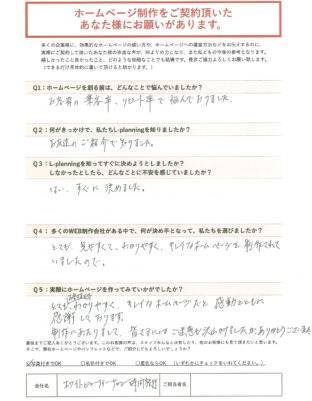 ホームページ制作をご契約頂いた
あなた様にお願いがあります。
多くの企業様に、効果的なホームページの使い方や、ホームページへの運営方法などをお伝えするのに、
実際にご契約して頂いたあなた様の率直な声が、何よりの力となり、また私どもの今後の参考となります。
嬉しかったこと良かったこと、どのような些細なことでも結構です。是非ご協力よろしくお願い致します。
(できるだけ具体的に書いて頂けると助かります。)
Q1:ホームページを創る前は、どんなことで悩んでいましたか?
お客様の来店率、リピート率で悩んでおりました。
Q2:何がきっかけで、私たちL-planningを知りましたか?
お友達のご紹介で知りました。
Q3:L-planningを知ってすぐに決めようとしましたか?
しなかったとしたら、どんなことに不安を感じていましたか?
はい、すぐに決めました。
Q4:多くのWEB制作会社がある中で、何が決め手となって、私たちを選びましたか?
とても、見やすくて、わかりやすく、キレイなホームページを制作されて
いましたので。
Q5:実際にホームページを作ってみていかがでしたか?
とても、わかりやすく、キレイなホームページだと感動とともに
感謝しております。
制作にあたりまして、皆さまには ご迷惑も ありがとうござい
最後までご記入ありがとうございます。このお客様の声は、スタッフみんなと決起したり、他のお客様にも見て頂きたいと思います。
そこで、弊社ホームページやパンフレットなどで、ご紹介してもよろしいでしょうか?
写真付きでOK □名前付きまでOK □匿名ならOK (いずれかにチェックをいれてください。)
会社名 ホワイトビューティーサロン ご担当者名